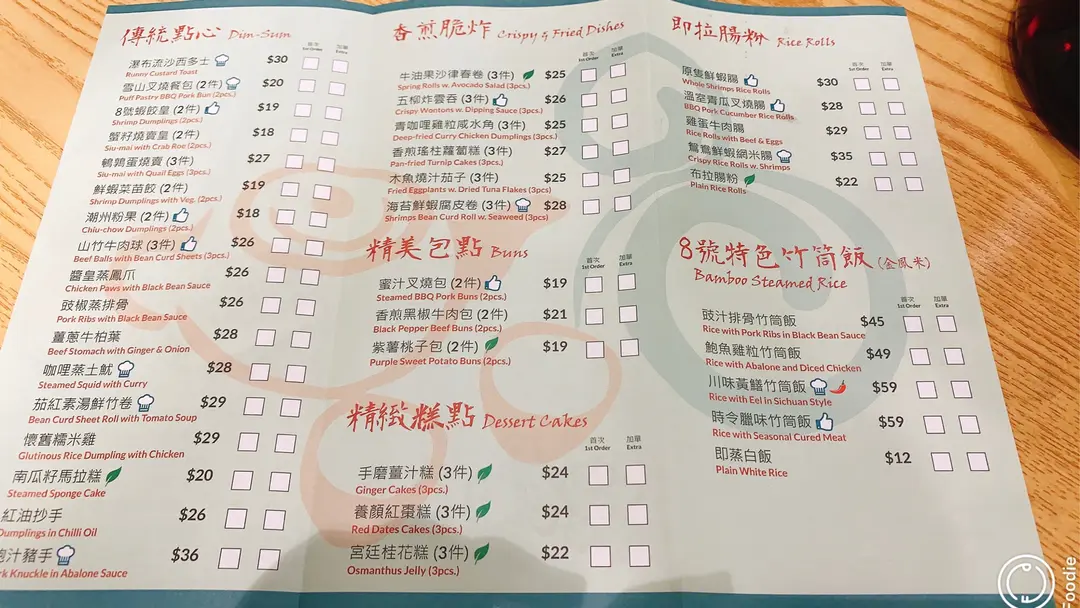 傳統點心 Dim-Sum
首次 加單
瀑布流沙西多士 $30
Runny Custard Toast
雪山叉燒餐包 (2件) $20
Puff Pastry BBQ Pork Bun (2pcs.)
8號蝦餃皇 (2件) $19
Shrimp Dumplings (2pcs.)
蟹籽燒賣皇 (2件) $18
Siu-mai with Crab Roe (2pcs.)
鵪鶉蛋燒賣 (3件) $27
Siu-mai with Quail Eggs (3pcs.)
鮮蝦菜苗餃 (2件) $19
Shrimp Dumplings with Veg. (2pcs.)
潮州粉果 (2件) $18
Chiu-chow Dumplings (2pcs.)
山竹牛肉球 (3件) $26
Beef Balls with Bean Curd Sheets (3pcs.)
醬皇蒸鳳爪 $26
Chicken Paws with Black Bean Sauce
豉椒蒸排骨 $26
Pork Ribs with Black Bean Sauce
薑蔥牛柏葉 $28
Beef Stomach with Ginger & Onion
咖哩蒸土魷 $28
Steamed Squid with Curry
茄紅素湯鮮竹卷 $29
Bean Curd Sheet Roll with Tomato Soup
懷舊糯米雞 $29
Glutinous Rice Dumpling with Chicken
南瓜籽馬拉糕 $20
Steamed Sponge Cake
紅油抄手 $26
Dumplings in Chilli Oil
鮑汁豬手 $36
Knuckle in Abalone Sauce
香煎脆炸 Crispy & Fried Dishes
首次 加單
1st Order Extra
牛油果沙律春卷 (3件) $25
Spring Rolls w. Avocado Salad (3pcs.)
五柳炸雲吞 (3件) $26
Crispy Wontons w. Dipping Sauce (3pcs.)
青咖哩雞粒咸水角 (3件) $25
Deep-fried Curry Chicken Dumplings (3pcs.)
香煎瑤柱蘿蔔糕 (3件) $27
Pan-fried Turnip Cakes (3pcs.)
木魚燒汁茄子 (3件) $25
Fried Eggplants w. Dried Tuna Flakes (3pcs)
海苔鮮蝦腐皮卷 (3件) $28
Shrimps Bean Curd Roll w. Seaweed (3pcs)
精美包點 Buns
首次 加單
1st Order Extra
蜜汁叉燒包 (2件) $19
Steamed BBQ Pork Buns (2pcs.)
香煎黑椒牛肉包 (2件) $21
Black Pepper Beef Buns (2pcs.)
紫薯桃子包 (2件) $19
Purple Sweet Potato Buns (2pcs.)
精緻糕點 Dessert Cakes
首次 加單
1st Order Extra
手磨薑汁糕 (3件) $24
Ginger Cakes (3pcs.)
養顏紅棗糕 (3件) $24
Red Dates Cakes (3pcs.)
宮廷桂花糕 (3件) $22
Osmanthus Jelly (3pcs.)
即拉腸粉 Rice Rolls
首次 加單
1st Order Extra
原隻鮮蝦腸 $30
Whole Shrimps Rice Rolls
溫室青瓜叉燒腸 $28
BBQ Pork Cucumber Rice Rolls
雞蛋牛肉腸 $29
Rice Rolls with Beef & Eggs
鴛鴦鮮蝦網米腸 $35
Crispy Rice Rolls w. Shrimps
布拉腸粉 $22
Plain Rice Rolls
8號特色竹筒飯 (金鳳米)
Bamboo Steamed Rice
首次 加單
1st Order Extra
豉汁排骨竹筒飯 $45
Rice with Pork Ribs in Black Bean Sauce
鮑魚雞粒竹筒飯 $49
Rice with Abalone and Diced Chicken
川味黃鱔竹筒飯 $59
Rice with Eel in Sichuan Style
時令臘味竹筒飯 $59
Rice with Seasonal Cured Meat
即蒸白飯 $12
Plain White Rice
Foodie